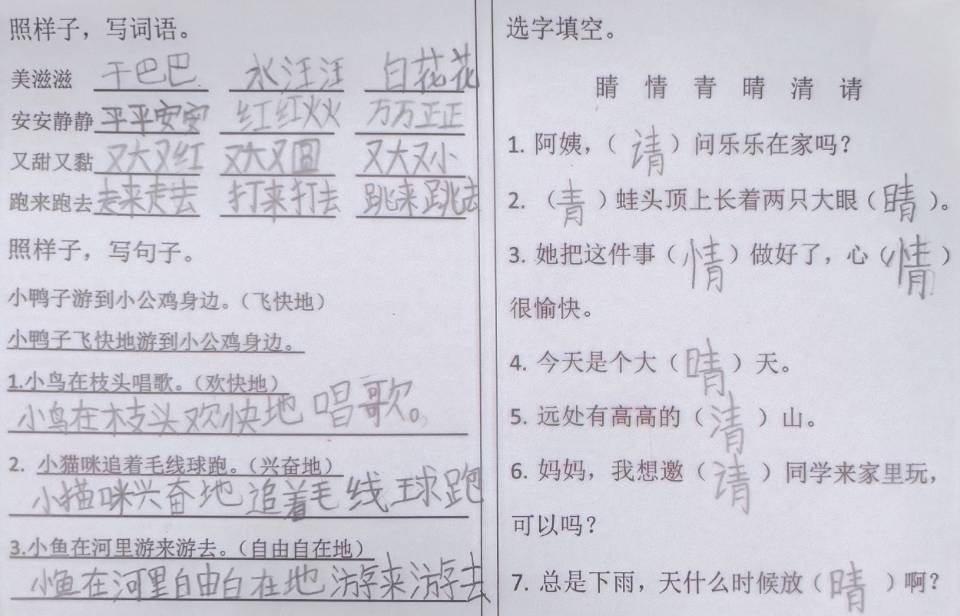 照样子，写词语。
美滋滋 干巴巴 水汪汪 白花花
安安静静 平平安安 红红火火 万万正正
又甜又黏 又大又红 又大又圆 又大又小
跑来跑去 走来走去 打来打去 跳来跳去
照样子，写句子。
小鸭子游到小公鸡身边。（飞快地）
小鸭子飞快地游到小公鸡身边。
1.小鸟在枝头唱歌。（欢快地）
小鸟在枝头欢快地唱歌。
2. 小猫咪追着毛线球跑。（兴奋地）
小猫咪兴奋地追着毛线球跑
3.小鱼在河里游来游去。（自由自在地）
小鱼在河里自由自在地游来游去
选字填空。
睛 情 青 晴 清 请
1. 阿姨，（请）问乐乐在家吗？
2. （青）蛙头顶上长着两只大眼（睛）。
3. 她把这件事（情）做好了，心（情）
很愉快。
4. 今天是个大（晴）天。
5. 远处有高高的（清）山。
6. 妈妈，我想邀（请）同学来家里玩，
可以吗？
7. 总是下雨，天什么时候放（晴）啊？